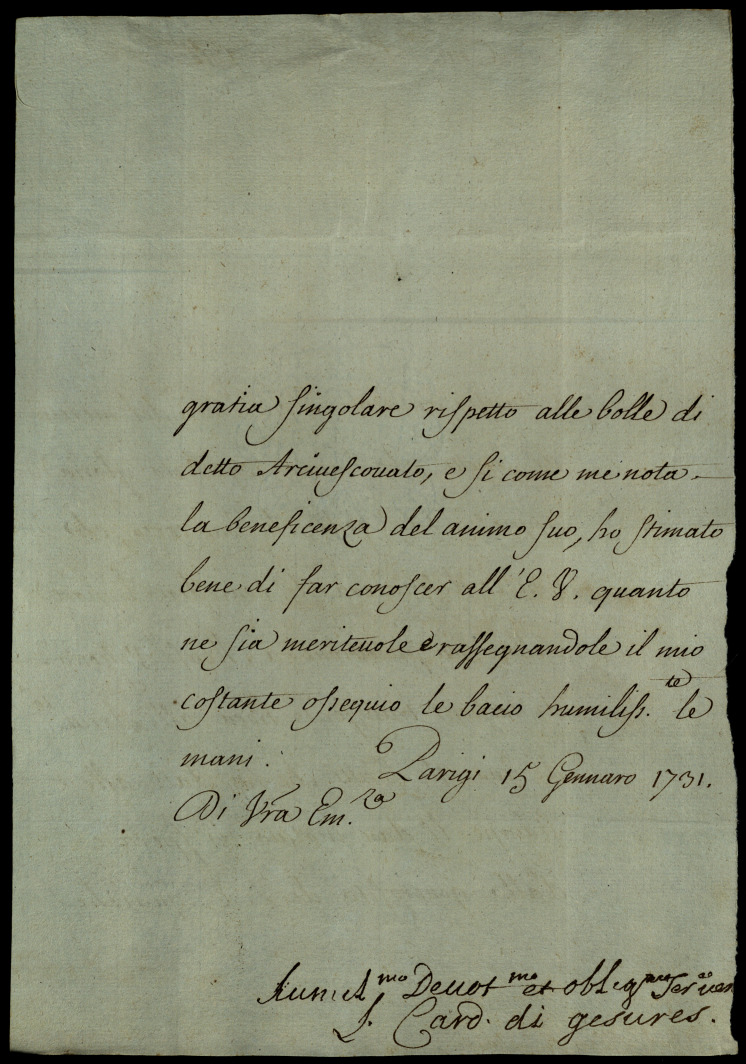 gratia singolare rispetto alle bolle di
detto Arciuescouato, e si come me nota
la beneficenza del animo suo, ho stimato
bene di far conoscer all'E. V. quanto
ne sia meriteuole e rassegnandole il mio
costante ossequio le bacio humiliss.te le
mani. Parigi 15 Gennaro 1731.
Di Vra Em.za
Deuot mo et oblig mo
L. Card. di gesures.